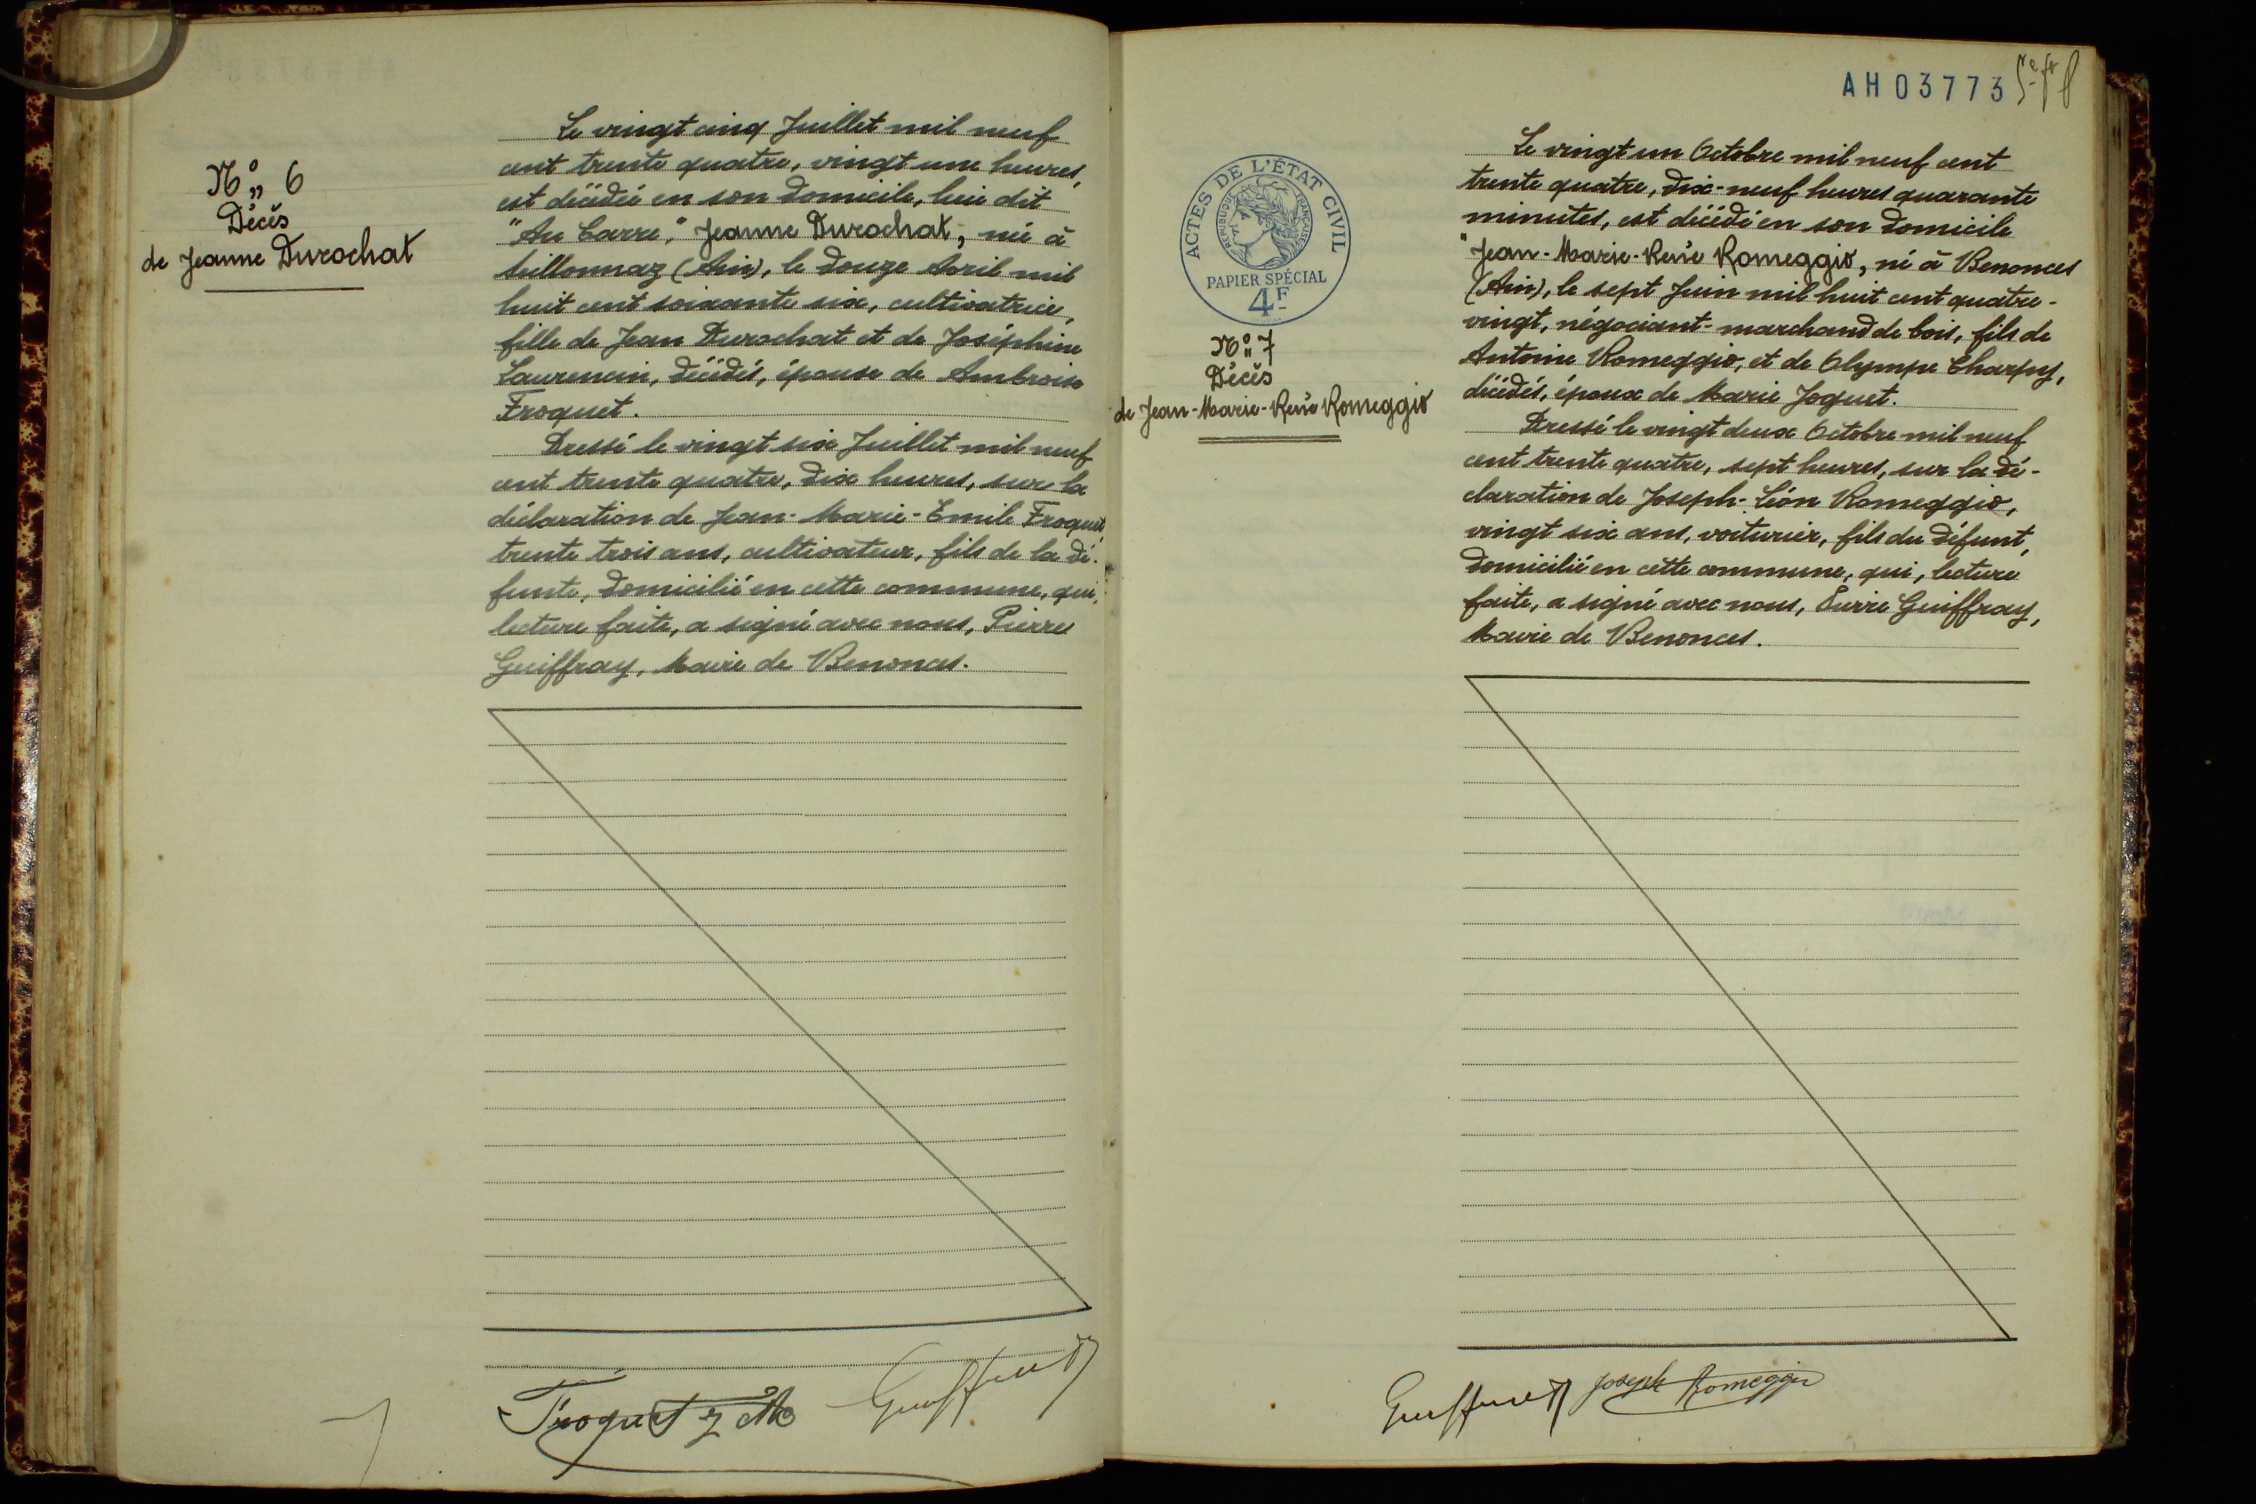 N° 6
Décès
de Jeanne Durochat
Le vingt cinq Juillet mil neuf
cent trente quatre, vingt une heures,
est décédée en son domicile, lieu dit
"Au Carre," Jeanne Durochat, née à
Seillonnaz (Ain), le douze Avril mil
huit cent soixante six, cultivatrice,
fille de Jean Durochat et de Joséphine
Laurencin, décédés, épouse de Ambroise
Froquet.
Dressé le vingt six Juillet mil neuf
cent trente quatre, dix heures, sur la
déclaration de Jean-Marie-Emile Froquet,
trente trois ans, cultivateur, fils de la dé-
funte, domicilié en cette commune, qui,
lecture faite, a signé avec nous, Pierre
Guiffray, Maire de Benonces.
Froquet J M
Guiffray
AH03773
ACTES DE L'ÉTAT CIVIL
RÉPUBLIQUE FRANÇAISE
PAPIER SPÉCIAL
4F
N° 7
Décès
de Jean-Marie-René Romeggio
Le vingt un Octobre mil neuf cent
trente quatre, dix-neuf heures quarante
minutes, est décédé en son domicile
"Jean-Marie-René Romeggio, né à Benonces
(Ain), le sept Juin mil huit cent quatre-
vingt, négociant-marchand de bois, fils de
Antoine Romeggio, et de Olympe Charpy,
décédés, époux de Marie Joguet.
Dressé le vingt deux Octobre mil neuf
cent trente quatre, sept heures, sur la dé-
claration de Joseph-Léon Romeggio,
vingt six ans, voiturier, fils du défunt,
domicilié en cette commune, qui, lecture
faite, a signé avec nous, Pierre Guiffray,
Maire de Benonces.
Guiffray Joseph Romeggio